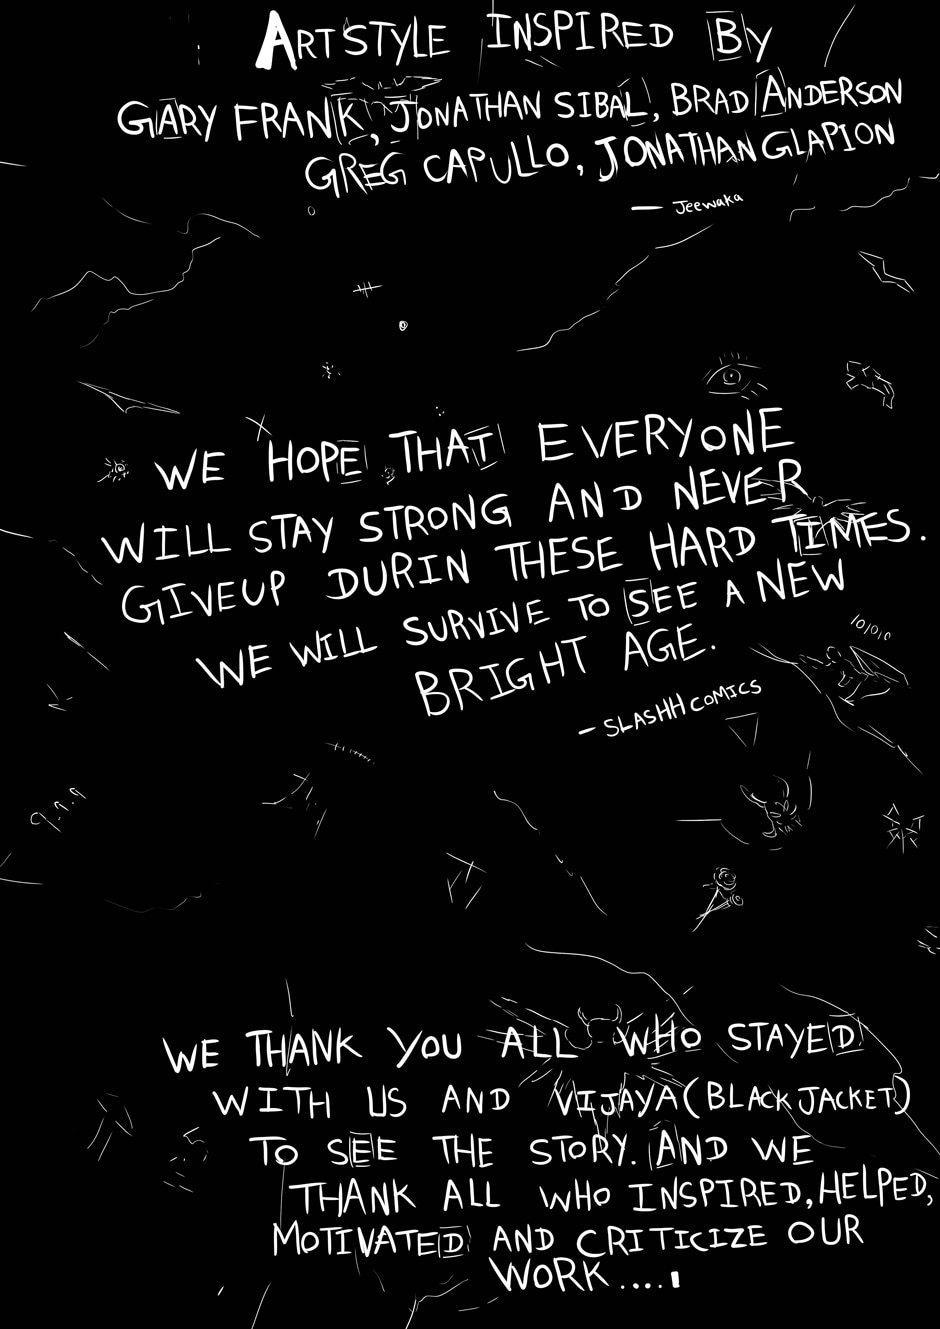 ARTSTYLE INSPIRED BY
GARY FRANK, JONATHAN SIBAL, BRAD ANDERSON
GREG CAPULLO, JONATHAN GLAPION
— Jeewaka
WE HOPE THAT EVERYONE
WILL STAY STRONG AND NEVER
GIVEUP DURIN THESE HARD TIMES.
WE WILL SURVIVE TO SEE A NEW
BRIGHT AGE.
10/010
– SLASHH COMICS
9.9.9
WE THANK YOU ALL WHO STAYED
WITH US AND VIJAYA (BLACK JACKET)
TO SEE THE STORY. AND WE
THANK ALL WHO INSPIRED, HELPED,
MOTIVATED AND CRITICIZE OUR
WORK....